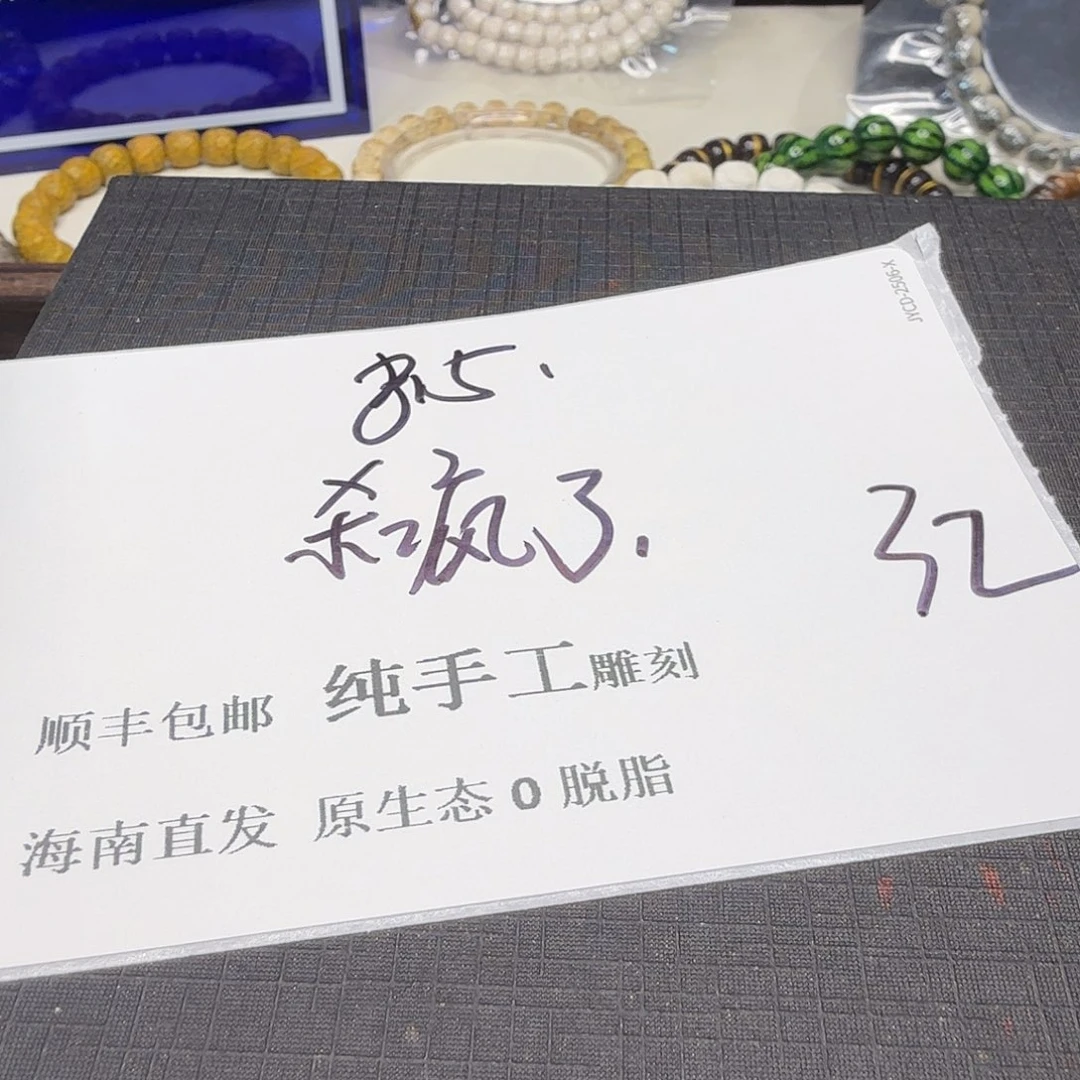 JYCD-2506-X
杀疯了.
顺丰包邮 纯手工雕刻
海南直发 原生态0脱脂